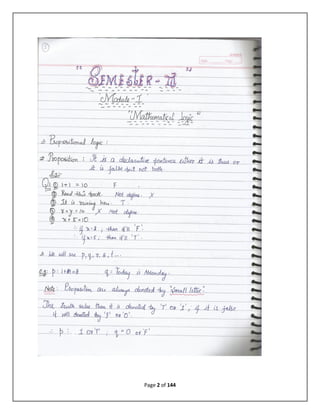 "SEMESTER - III"
Module - I
"Mathematical logic"
Propositional logic :
Proposition : It is a declarative sentence either it is true or
it is false but not both
① 1+1 = 10 F
② Read this book. Not define. X
③ It is raining here. T
④ x+y = 10 X Not define
⑤ x+5 = 10
if x=8, then it's 'F'
if x=5, then it's 'T'.
We will use p, q, r, s, t....
e.g. p: q: Today is Monday.
Note: Proposition are always denoted by "small letter"
The truth value then it is denoted by 'T' or '1', if it is false
it will denoted by 'F' or '0'.
∴ p : 1 or 'T' , q = 0 or 'F'
Page 2 of 144